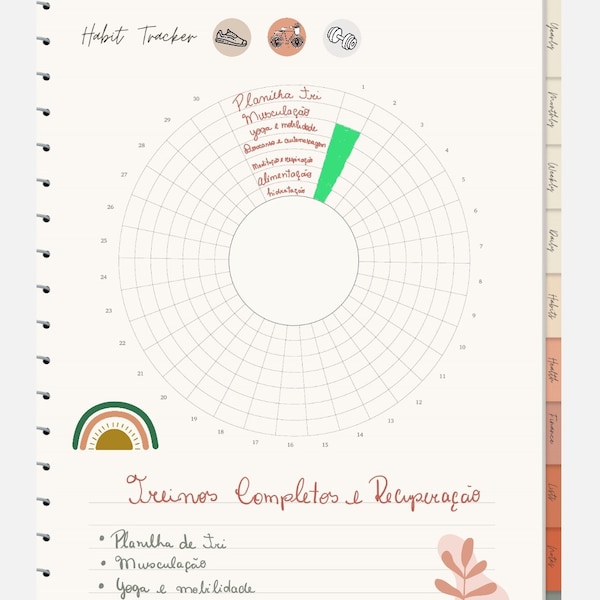 Habit Tracker
Planilha Tri
Musculação
yoga e mobilidade
Descanso e automassagem
Meditação e respiração
alimentação
hidratação
1
2
3
4
5
6
7
8
9
10
11
12
13
14
15
16
17
18
19
20
21
22
23
24
25
26
27
28
29
30
Yearly
Monthly
Weekly
Daily
Habits
Health
Finance
Lists
Notes
Treinos Completos e Recuperação
• Planilha de Tri
• Musculação
• Yoga e mobilidade